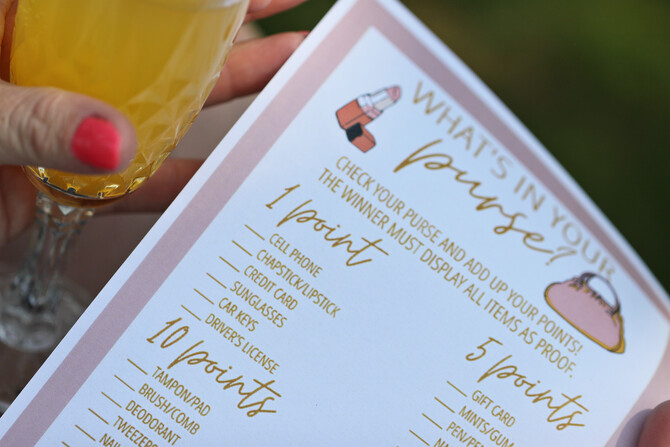 WHAT'S IN YOUR
purse?
CHECK YOUR PURSE AND ADD UP YOUR POINTS!
THE WINNER MUST DISPLAY ALL ITEMS AS PROOF.
1 point
CELL PHONE
CHAPSTICK/LIPSTICK
CREDIT CARD
SUNGLASSES
CAR KEYS
DRIVER'S LICENSE
10 points
TAMPON/PAD
BRUSH/COMB
DEODORANT
5 points
GIFT CARD
MINTS/GUM